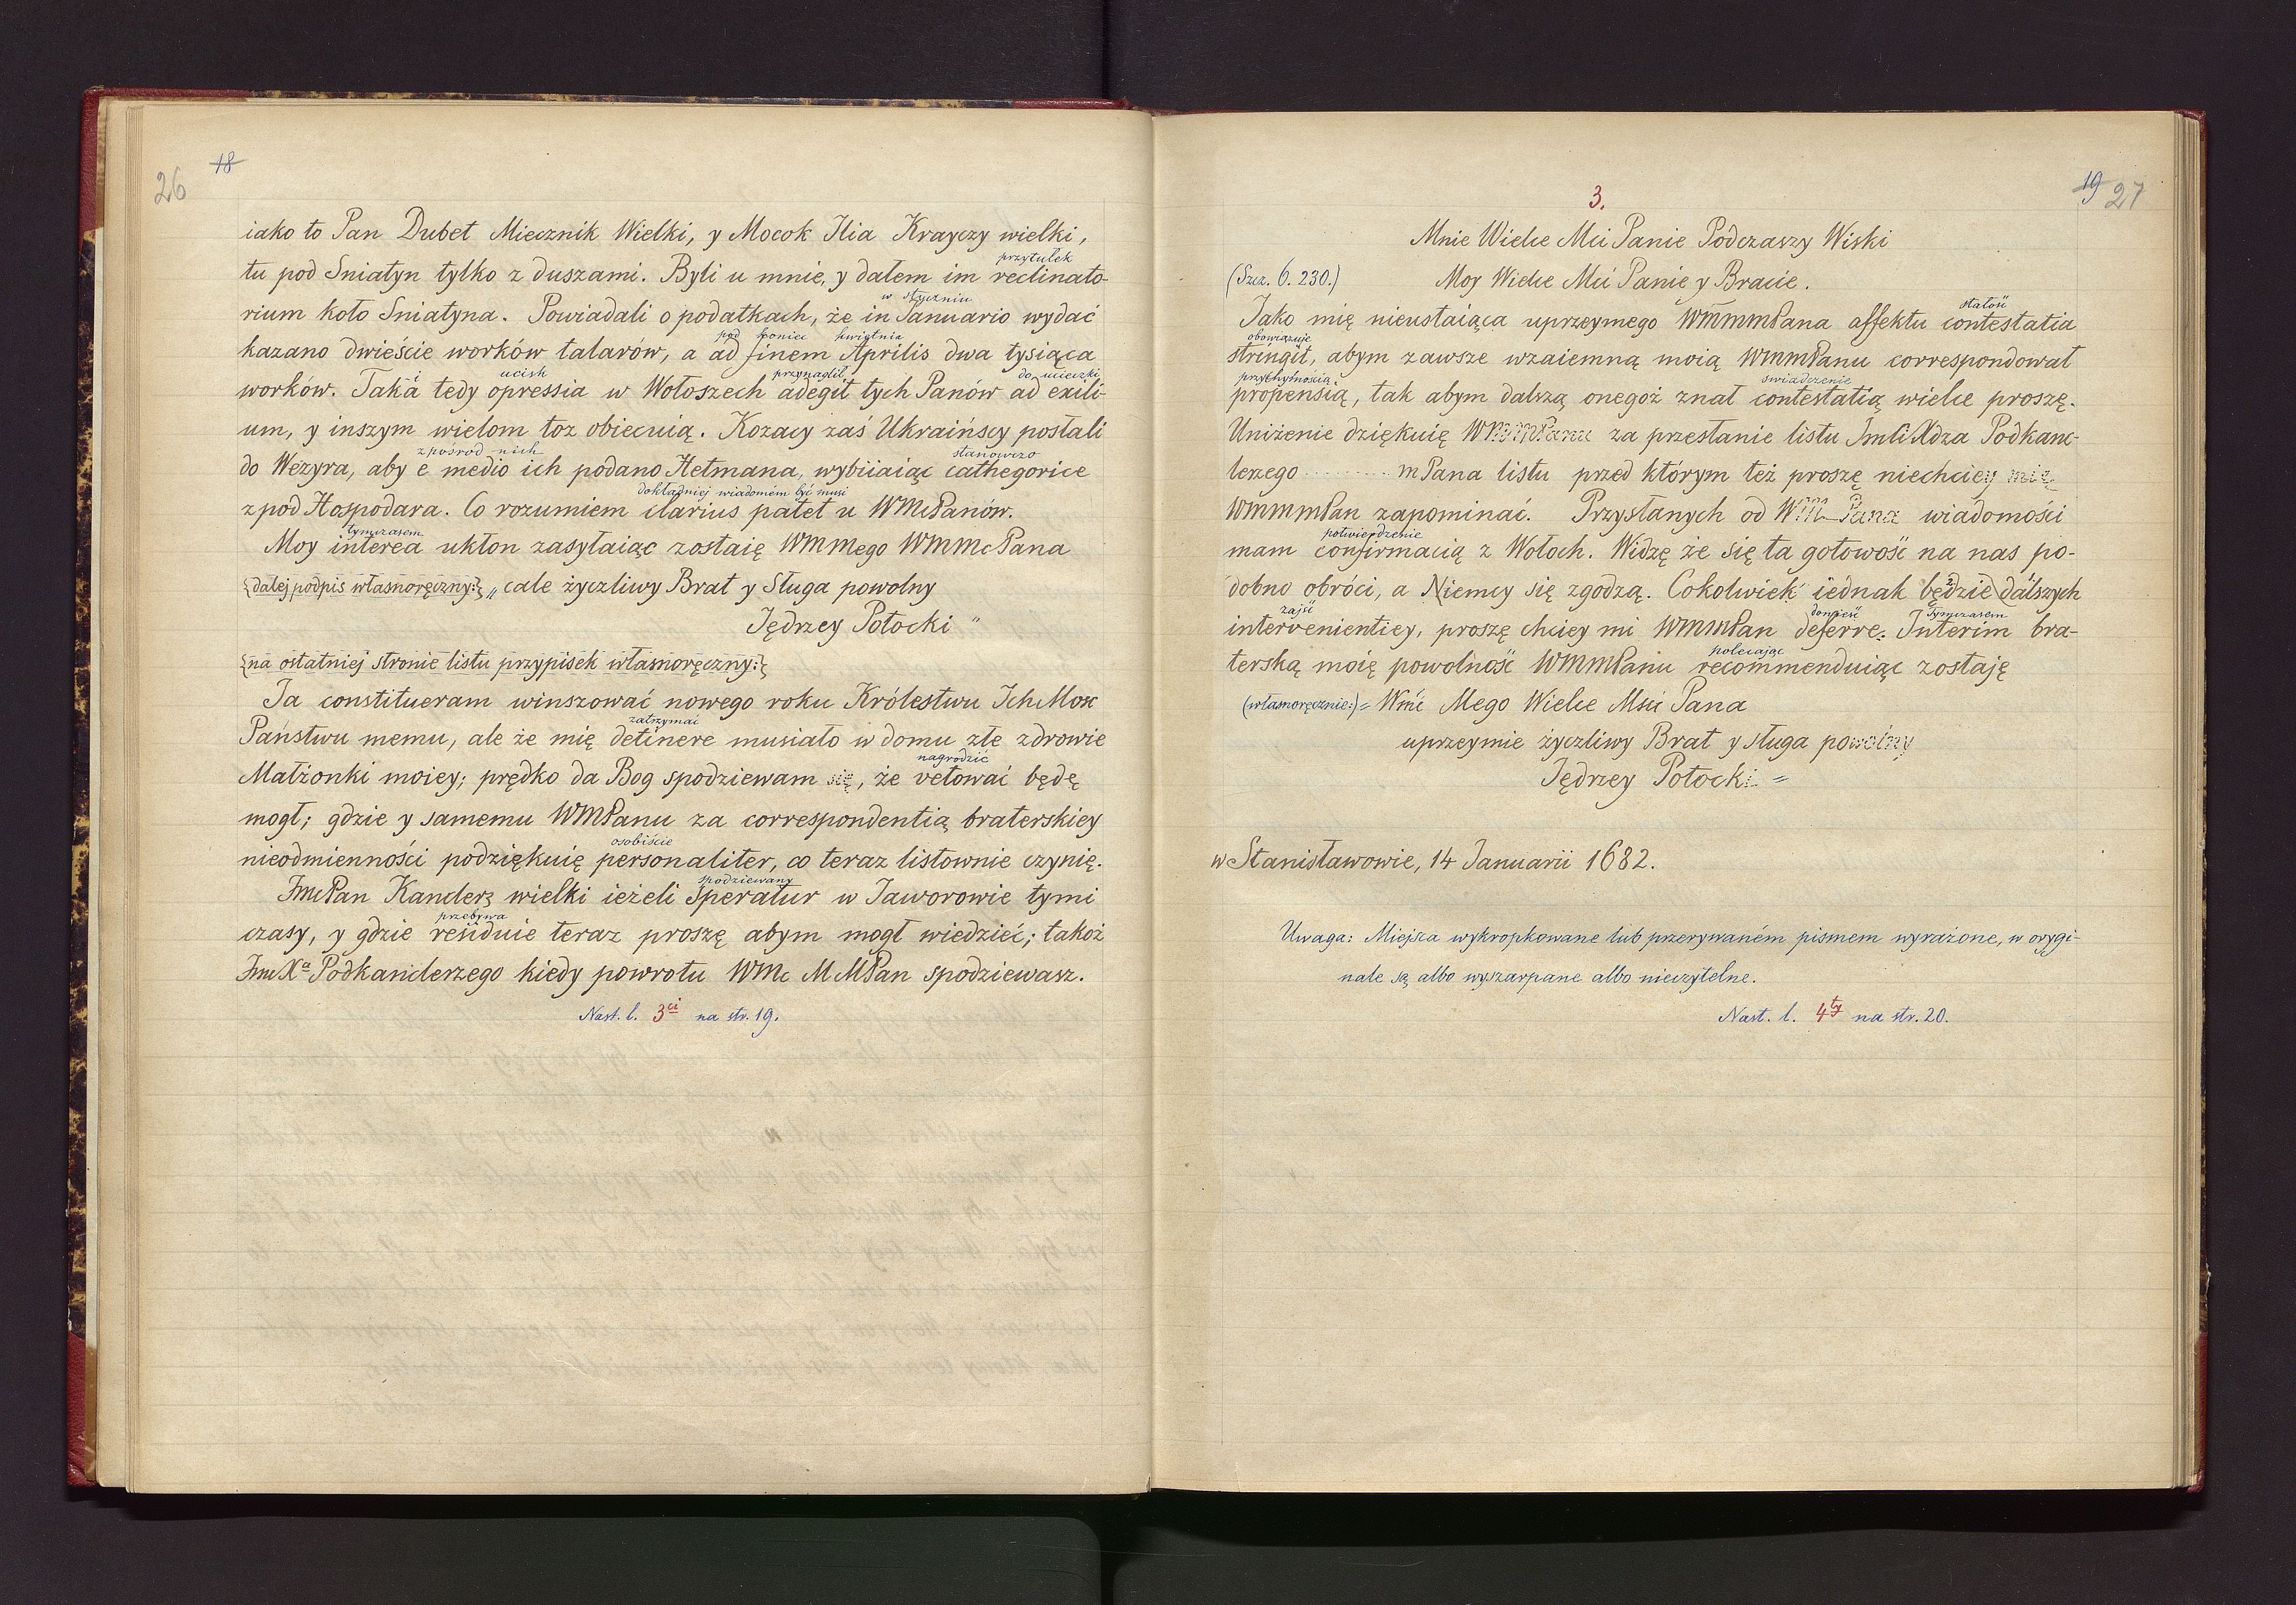 26 18
iako to Pan Dubet Miecznik Wielki, y Mocok Ilia Krayczy wielki,
przytułek
tu pod Sniatyn tylko z duszami. Byli u mnie, y dałem im reclinato-
w styczniu
rium koło Sniatyna. Powiadali o podatkach, że in Januario wydać
pod koniec kwietnia
kazano dwieście worków talarów, a ad finem Aprilis dwa tysiąca
ucisk przynaglił do ucieczki
worków. Taka tedy opressia w Wołoszech adegit tych Panów ad exili-
um, y inszym wielom toz obiecuią. Kozacy zaś Ukraińscy posłali
zpośród nich stanowczo
do Wezyra, aby e medio ich podano Hetmana, wybiiaiąc cathegorice
dokładniej wiadomém być musi
zpod Hospodara. Co rozumiem clarius patet u WMcPanów.
tymczasem
Moy interea ukłon zasyłaiąc zostaię WMMego WMMcPana
{dalej podpis własnoręczny:} „cale życzliwy Brat y Sługa powolny
Jędrzey Potocki "
{na ostatniej stronie listu przypisek własnoręczny:}
Ja constitueram winszować nowego roku Królestwu Ich Mość
zatrzymać
Państwu memu, ale że mię detinere musiało w domu złe zdrowie
nagrodzić
Małżonki moiey; prędko da Bog spodziewam się, że vetować będę
mogł; gdzie y samemu WMPanu za correspondentią braterskiey
osobiście
nieodmienności podziękuię personaliter, co teraz listownie czynię.
spodziewany
JmcPan Kanclerz wielki ieżeli speratur w Jaworowie tymi
przebywa
czasy, y gdzie residuie teraz proszę abym mogł wiedzieć; takoż
JmcXa Podkanclerzego kiedy powrotu WMc MMPan spodziewasz.
Nast. l. 3ci na str. 19.
19 27
3.
Mnie Wielce Mci Panie Podczaszy Wiski
(Szcz. 6. 230.) Moy Wielce Mci Panie y Bracie.
stałość
Jako mię nieustaiąca uprzeymego WMMMPana affektu contestatia
obowiązuje
stringit, abym zawsze wzaiemną moią WMMPanu correspondował
przychylnością świadczenie
propensią, tak abym dalszą onegoż znał contestatią wielce proszę.
Uniżenie dziękuię WMMMPanu za przesłanie listu JmCi Xdza Podkanc-
lerzego ......... mPana listu przed którym też proszę niechciey mię
WMMMPan zapominać. Przysłanych od WM–Pana wiadomości
potwierdzenie
mam confirmacią z Wołoch. Widzę że się ta gotowość na nas po-
dobno obróci, a Niemcy się zgodzą. Cokolwiek iednak będzie dalszych
zajść donieść Tymczasem
intervenientiey, proszę chciey mi WMMPan deferre. Interim bra-
polecając
terską moię powolność WMMPanu recommenduiąc zostaję
(własnoręcznie:) = Wmć Mego Wielce Mści Pana
uprzeymie życzliwy Brat y sługa powolny
Jędrzey Potocki =
w Stanisławowie, 14 Januarii 1682.
Uwaga: Miejsca wykropkowane lub przerywaném pismem wyrażone, w orygi-
nale są albo wyszarpane albo nieczytelne.
Nast. l. 4ty na str. 20.